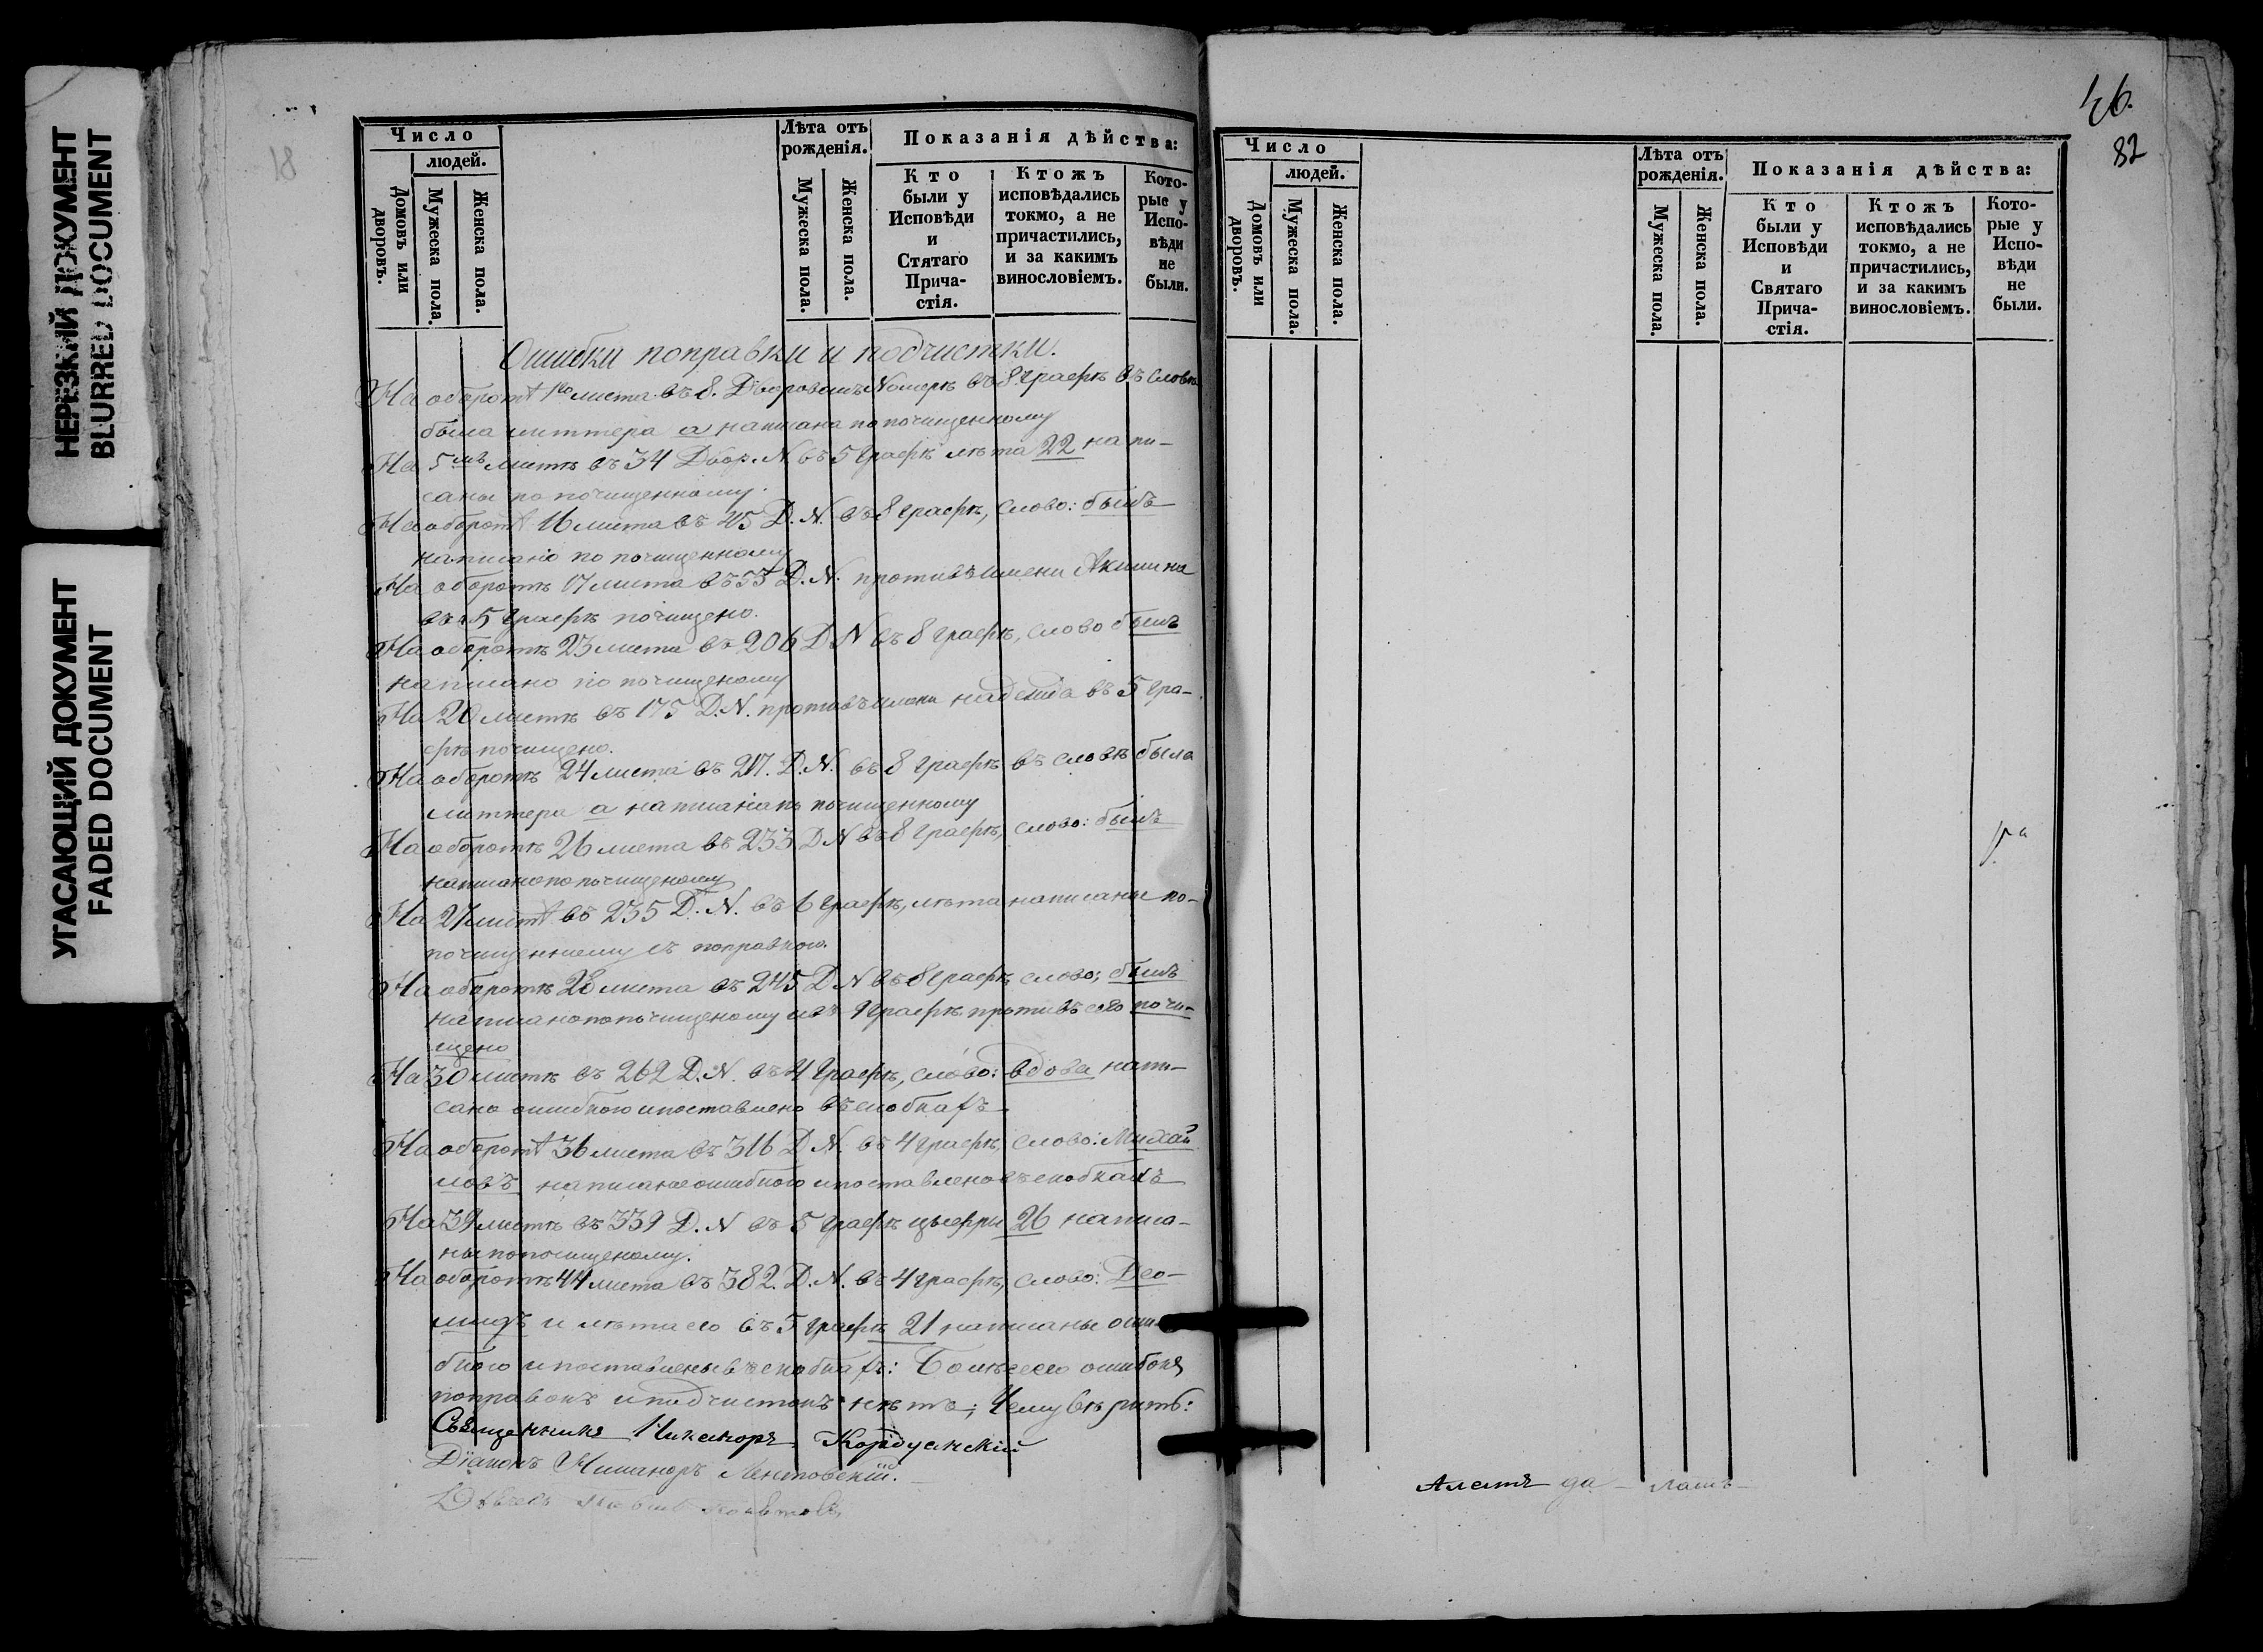 НЕРЕЗКИЙ ДОКУМЕНТ
BLURRED DOCUMENT
УГАСАЮЩИЙ ДОКУМЕНТ
FADED DOCUMENT
18
Число
людей.
Домовъ или дворовъ.
Мужеска пола.
Женска пола.
Лѣта отъ рожденія.
Мужеска пола.
Женска пола.
Показанія дѣйства:
Кто
были у
Исповѣди
и
Стятаго
Прича-
стія.
Ктожъ
исповѣдались
токмо, а не
причастились,
и за какимъ
винословіемъ.
Кото-
рые у
Испо-
вѣди
не
были.
Ошибки поправки и подчистки.
На оборотѣ 1го листа въ 8. Дворовомъ Номерѣ въ 8 графѣ въ словѣ
была литтера а написана по почищенному
На 5мъ листѣ въ 34 Двор. N. въ 5 графѣ лѣта 22 напи-
саны по почищенному.
На оборотѣ 16 листа въ 45 Д. N. въ 8 графѣ, слово: былъ
написано по почищенному
На оборотѣ 17 листа въ 53 Д. N. противъ имени Акилина
въ 5 графѣ почищено.
На оборотѣ 23 листа въ 206 Д N въ 8 графѣ, слово былъ
написано по почищеному
На 20 листѣ въ 175 Д. N. противъ имени надежда въ 5 гра-
фѣ почищено.
На оборотѣ 24 листа въ 217. Д. N. въ 8 графѣ въ словѣ была
литтера а написана по почищенному
На оборотѣ 26 листа въ 233 Д N въ 8 графѣ, слово: былъ
написано по почищеному
На 27 листѣ въ 235 Д. N. въ 6 графѣ, лѣта написаны по-
почищенному съ поправкою.
На оборотѣ 28 листа въ 245 Д N въ 8 графѣ слово; былъ
написано по почищеному и въ 9 графѣ противъ сего почи-
щено
На 30 листѣ въ 262 Д. N. въ 4 графѣ, слово: вдова напи-
сано ошибкою и поставлено въ скобкахъ
На оборотѣ 36 листа въ 316 Д N. въ 4 графѣ, слово: Михай
ловъ написано ошибкою и поставлено въ скобкахъ
На 39 листѣ въ 339 Д. N въ 5 графѣ цыфры 26 написа-
ны по почищеному.
На оборотѣ 44 листа въ 382. Д. N. въ 4 графѣ, слово: Део-
мидъ и лѣта его въ 5 графѣ 21 написаны оши-
бкою и поставлены въ скобкахъ: Болѣе сего ошибокъ
поправокъ и подчистокъ нѣтъ; Чему вѣрить:
Священникъ Никаноръ
Діаконъ Никаноръ
46.
82
Число
людей.
Домовъ или дворовъ.
Мужеска пола.
Женска пола.
Лѣта отъ рожденія.
Мужеска пола.
Женска пола.
Показанія дѣйства:
Кто
были у
Исповѣди
и
Святаго
Прича-
стія.
Ктожъ
исповѣдались
токмо, а не
причастились,
и за какимъ
винословіемъ.
Кото-
рые у
Испо-
вѣди
не
были.